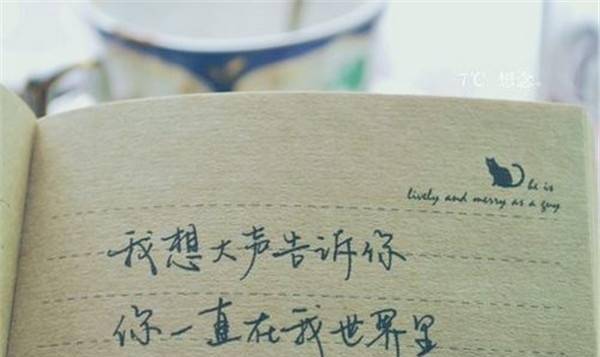 7℃ 想念。
he is
lively and merry as a guy
我想大声告诉你
你一直在我世界里